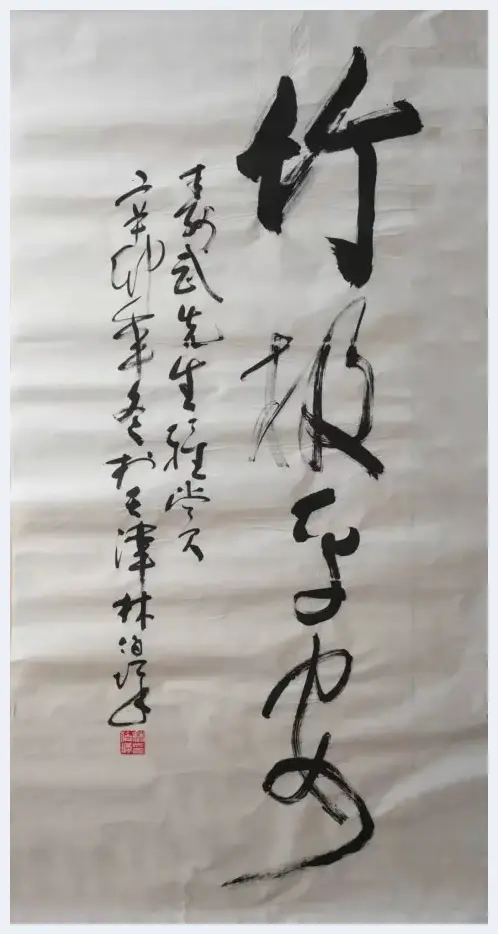 竹报平安
寿武先生雅赏
辛卯年冬於天津林伯